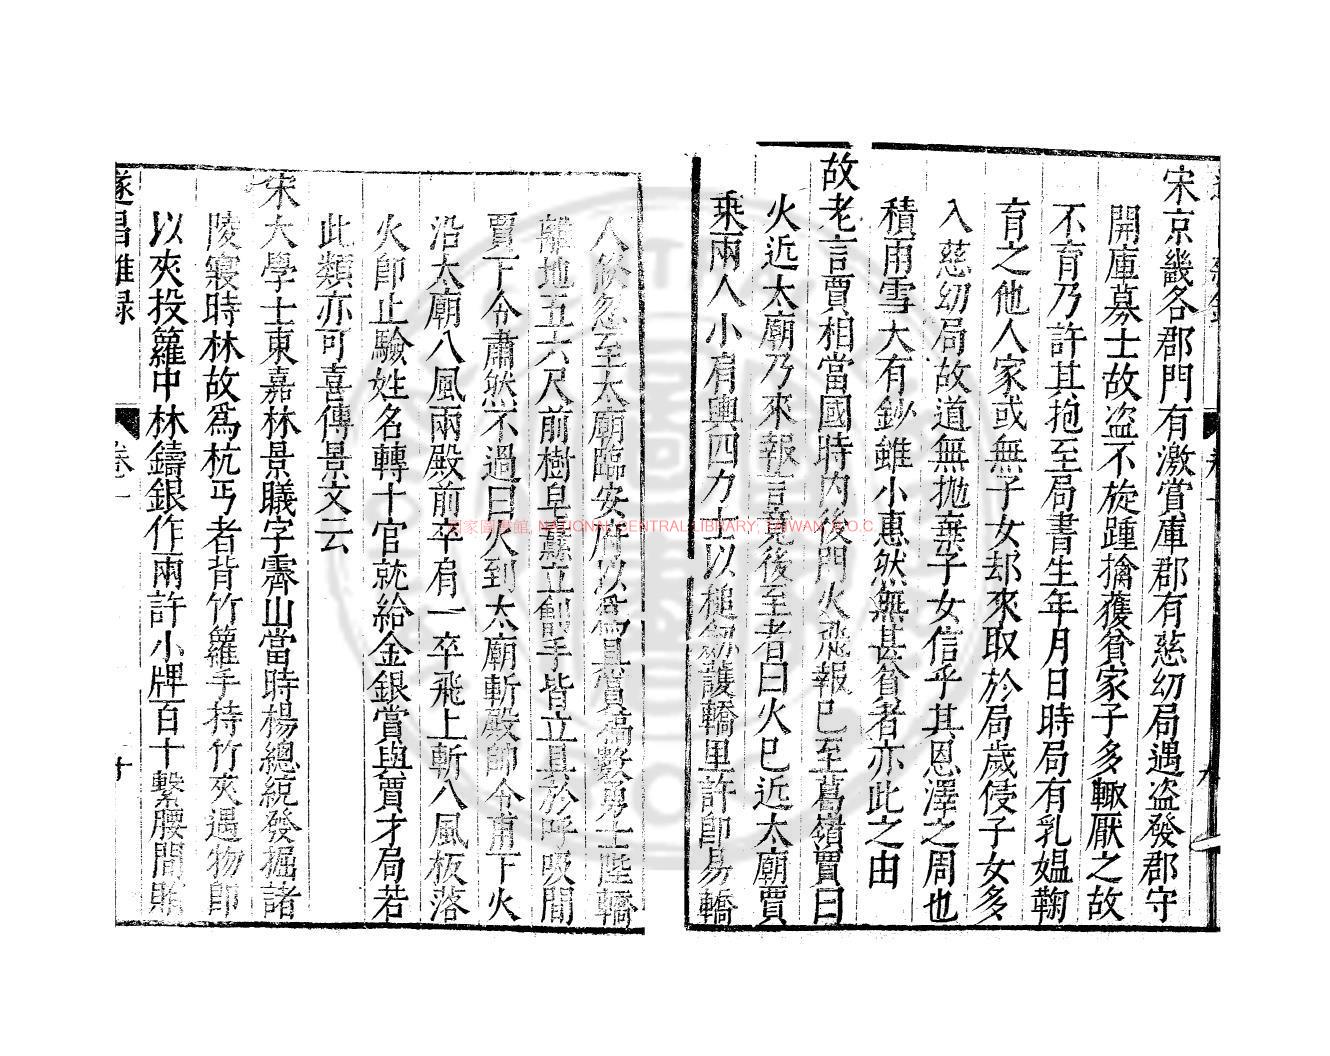 宋京畿各郡門有激賞庫郡有慈幼局遇盗發郡守
開庫募士故盗不旋踵擒獲貧家子多輙厭之故
不育乃許其抱至局書生年月日時局有乳媼鞠
育之他人家或無子女却來取於局歲侵子女多
入慈幼局故道無抛棄子女信乎其恩澤之周也
積雨雪大有鈔雖小惠然無甚貧者亦此之由
故老言賈相當國時内後門火飛報已至葛嶺賈曰
火近太廟乃來報言竟後至者曰火已近太廟賈
乗兩人小肩輿四力士以椎劒護轎里許卽易轎
人倏忽至太廟臨安府以爲具賞犒數勇士陛轎
離地五六尺前樹皂纛立劊手皆立具於呼吸間
賈下令肅然不過曰火到太廟斬殿帥令甫下火
沿太廟八風兩殿前卒肩一卒飛上斬八風板落
火卽止驗姓名轉十官就給金銀賞與賈才局若
此類亦可喜傳景文云
宋大學士東嘉林景曦字霽山當時楊總統發掘諸
陵寢時林故爲杭丐者背竹籮手持竹夾遇物卽
以夾投籮中林鑄銀作兩許小牌百十繫腰間賂
遂昌雜録
卷一
十
九
國家圖書館, NATIONAL CENTRAL LIBRARY, TAIWAN, R.O.C